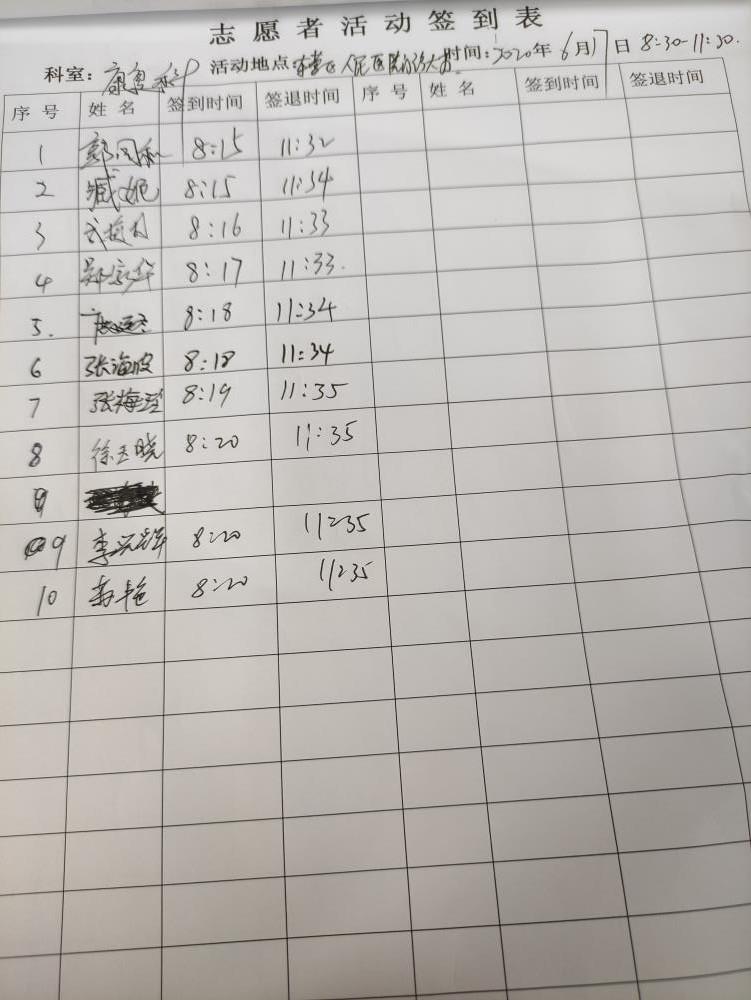 志愿者活动签到表
科室：康复科 活动地点：人民医院门诊大 时间：2020年6月17日 8:30-11:30.
序号 姓名 签到时间 签退时间 序号 姓名 签到时间 签退时间
1 8:15 11:32
2 臧妮 8:15 11:34
3 8:16 11:33
4 8:17 11:33.
5. 8:18 11:34
6 张海波 8:18 11:34
7 张梅 8:19 11:35
8 徐玉晓 8:20 11:35
9
9 李 8:20 11:35
10 8:20 11:35